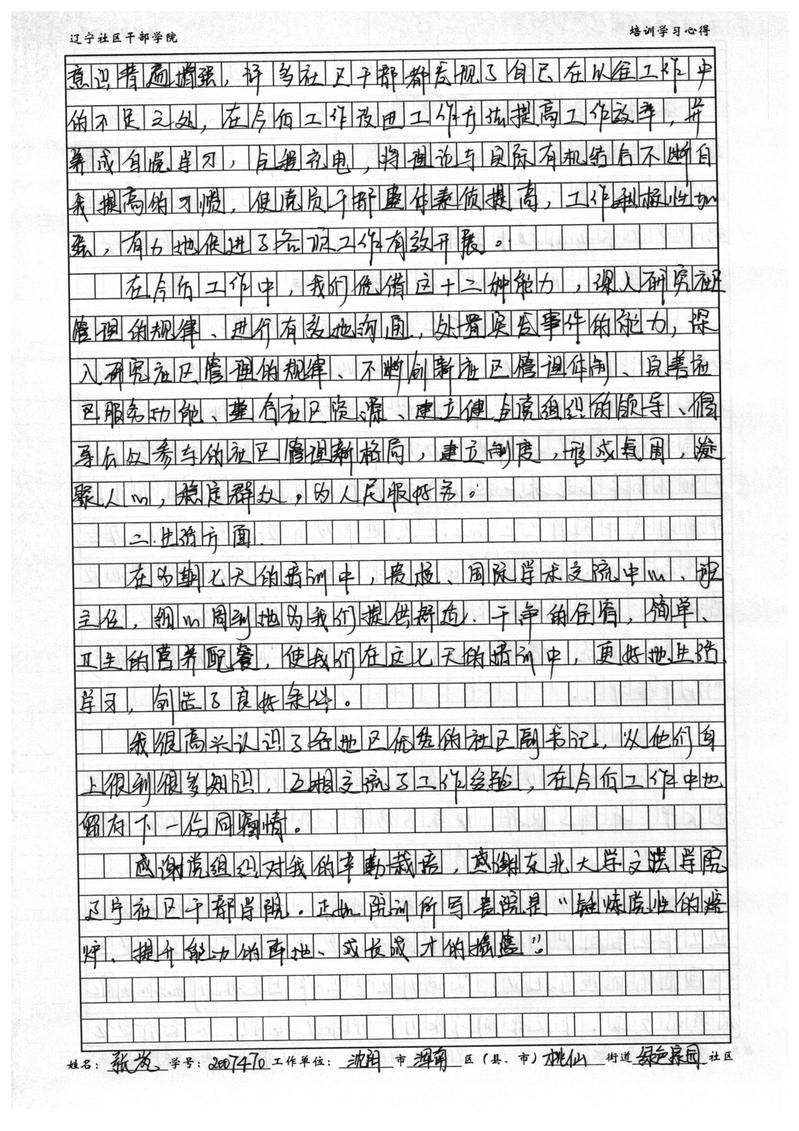 辽宁社区干部学院 培训学习心得
意识普遍增强，许多社区干部都发现了自己在以往工作中
的不足之处，在今后工作改进工作方法提高工作效率，并
养成自觉学习，自我充电，将理论与实际有机结合不断自
我提高的习惯，使党员干部整体素质提高，工作积极性加
强，有力地促进了各项工作有效开展。
在今后工作中，我们凭借这十二种能力，深入研究社区
管理的规律、进行有效地沟通，处置突发事件的能力，深
入研究社区管理的规律、不断创新社区管理体制、完善社
区服务功能，整合社区资源、建立健全党组织的领导、倡
导公众参与的社区管理新格局，建立制度，形成氛围，凝
聚人心，稳定群众，为人民服好务。
二.生活方面
在为期七天的培训中，贵校、国际学术交流中心、班
主任，细心周到地为我们提供舒适.干净的住宿，简单、
卫生的营养配餐，使我们在这七天的培训中，更好地生活
学习，创造了良好条件。
我很高兴认识了各地区优秀的社区副书记，从他们身
上得到很多知识，互相交流了工作经验，在今后工作中也
留存下一份同窗情。
感谢党组织对我的辛勤栽培，感谢东北大学文法学院
辽宁社区干部学院。正如院训所写贵院是“锤炼党性的熔
炉、提升能力的阵地、成长成才的摇篮”！
姓名：张 学号：2007470 工作单位：沈阳 市 浑南 区（县、市）桃仙 街道 绿色家园 社区